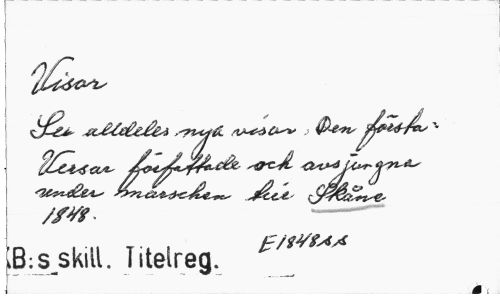 Visor
Sex alldeles nya visor. Den första:
Versar författade och avsjungna
under marschen till Skåne
1848.
E1848ss
KB:s skill. Titelreg.